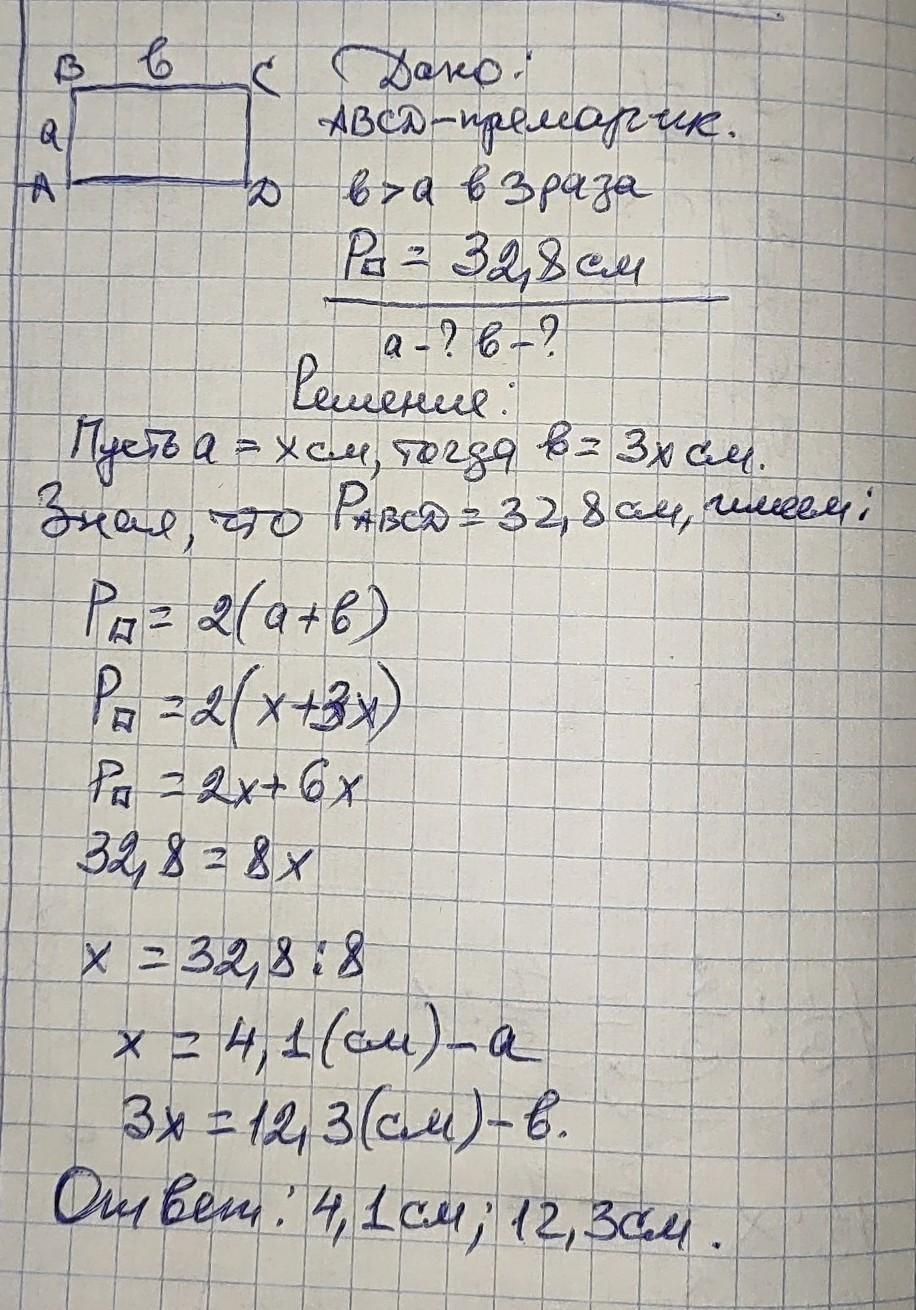 B в C
a
A D
Дано:
ABCD - прямоугник.
в > a в 3 раза
P▱ = 32,8 см
a - ? в - ?
Решение:
Пусть a = x см, тогда в = 3x см.
Зная, что PABCD = 32,8 см, имеем:
P▱ = 2(a + в)
P▱ = 2(x + 3x)
P▱ = 2x + 6x
32,8 = 8x
x = 32,8 : 8
x = 4,1 (см) - a
3x = 12,3 (см) - в.
Ответ: 4,1 см; 12,3 см.